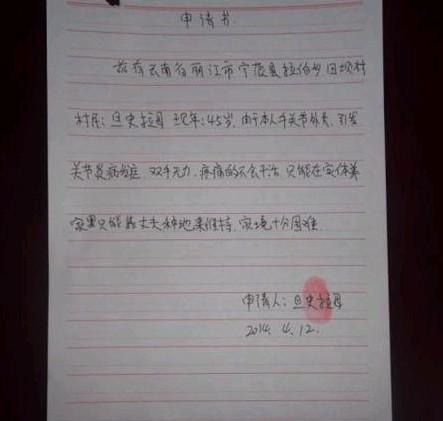 申请书
兹有云南省丽江市宁蒗县拉伯乡田坝村
村民：旦史拉姆 现年：45岁，由于本人手关节外表，引发
关节炎病症 双手无力，疼痛的不会干活 只能在家休养
家里只能靠丈夫种地来维持，家境十分困难.
申请人：旦史拉姆
2014. 4. 12.